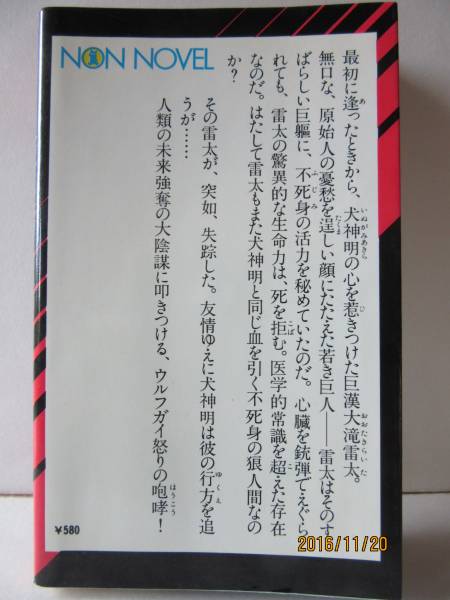 NON NOVEL
最初に逢ったときから、犬神明の心を惹きつけた巨漢大滝雷太。
無口な、原始人の憂愁を逞しい顔にたたえた若き巨人——雷太はそのす
ばらしい巨軀に、不死身の活力を秘めていたのだ。心臓を銃弾でえぐら
れても、雷太の驚異的な生命力は、死を拒む。医学的常識を超えた存在
なのだ。はたして雷太もまた犬神明と同じ血を引く不死身の狼人間なの
か？
その雷太が、突如、失踪した。友情ゆえに犬神明は彼の行方を追
うが……
人類の未来強奪の大陰謀に叩きつける、ウルフガイ怒りの咆哮！
￥580
2016/11/20